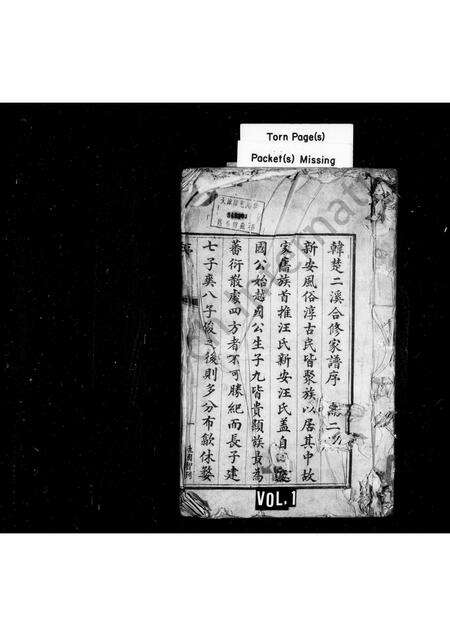 Torn Page(s)
Pocket(s) Missing
韓楚二溪合修家譜序
新安風俗淳古民皆聚族以居其中故
家舊族首推汪氏新安汪氏盖自
國公始越國公生子九皆貴顯族最為
蕃衍散處四方者不可勝紀而長子建
七子爽八子俊之後則多分布歙休婺
VOL.1